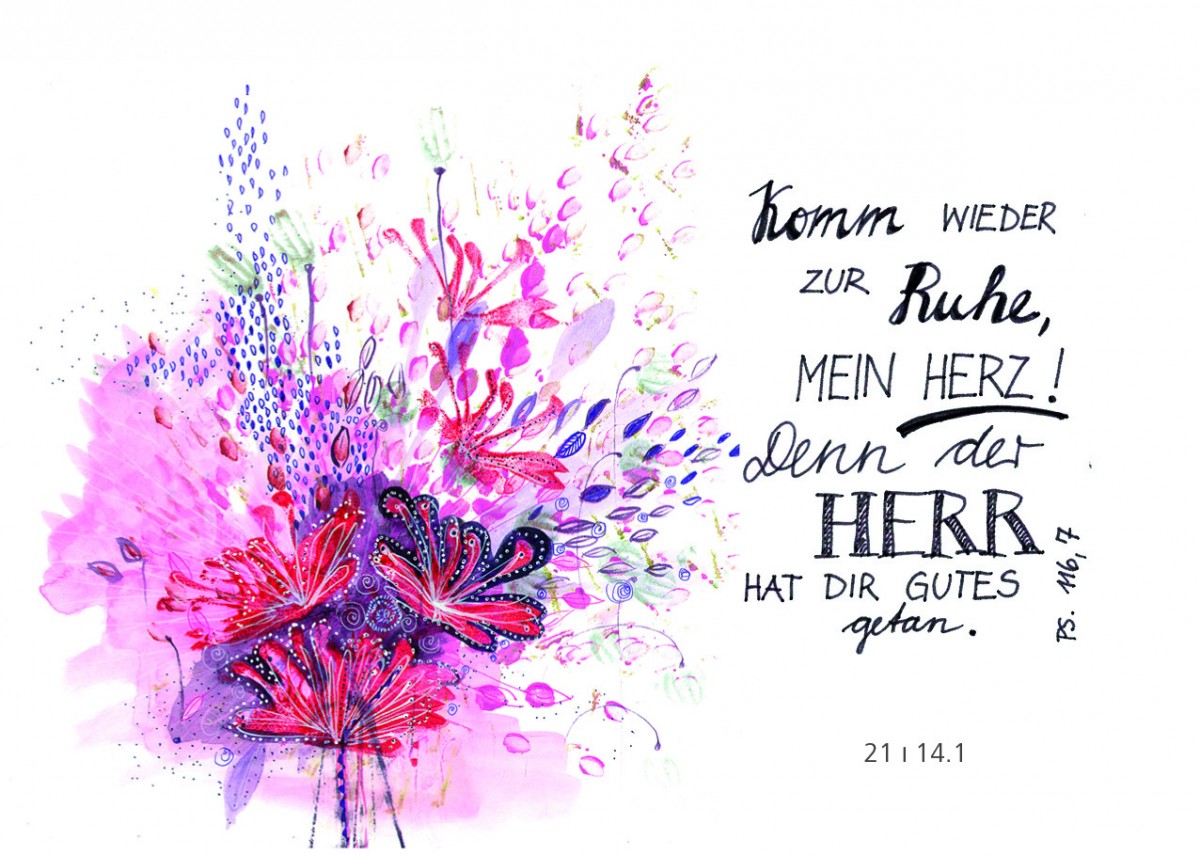 Komm WIEDER
ZUR Ruhe,
MEIN HERZ!
Denn der
HERR
HAT DIR GUTES
getan.
PS. 116,7
21 I 14.1